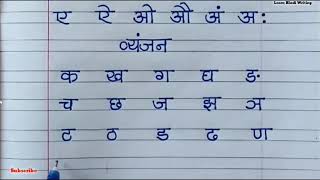 Learn Hindi Writing
ए ऐ ओ औ अं अः
व्यंजन
क ख ग घ ङ
च छ ज झ ञ
ट ठ ड ढ ण
Subscribe